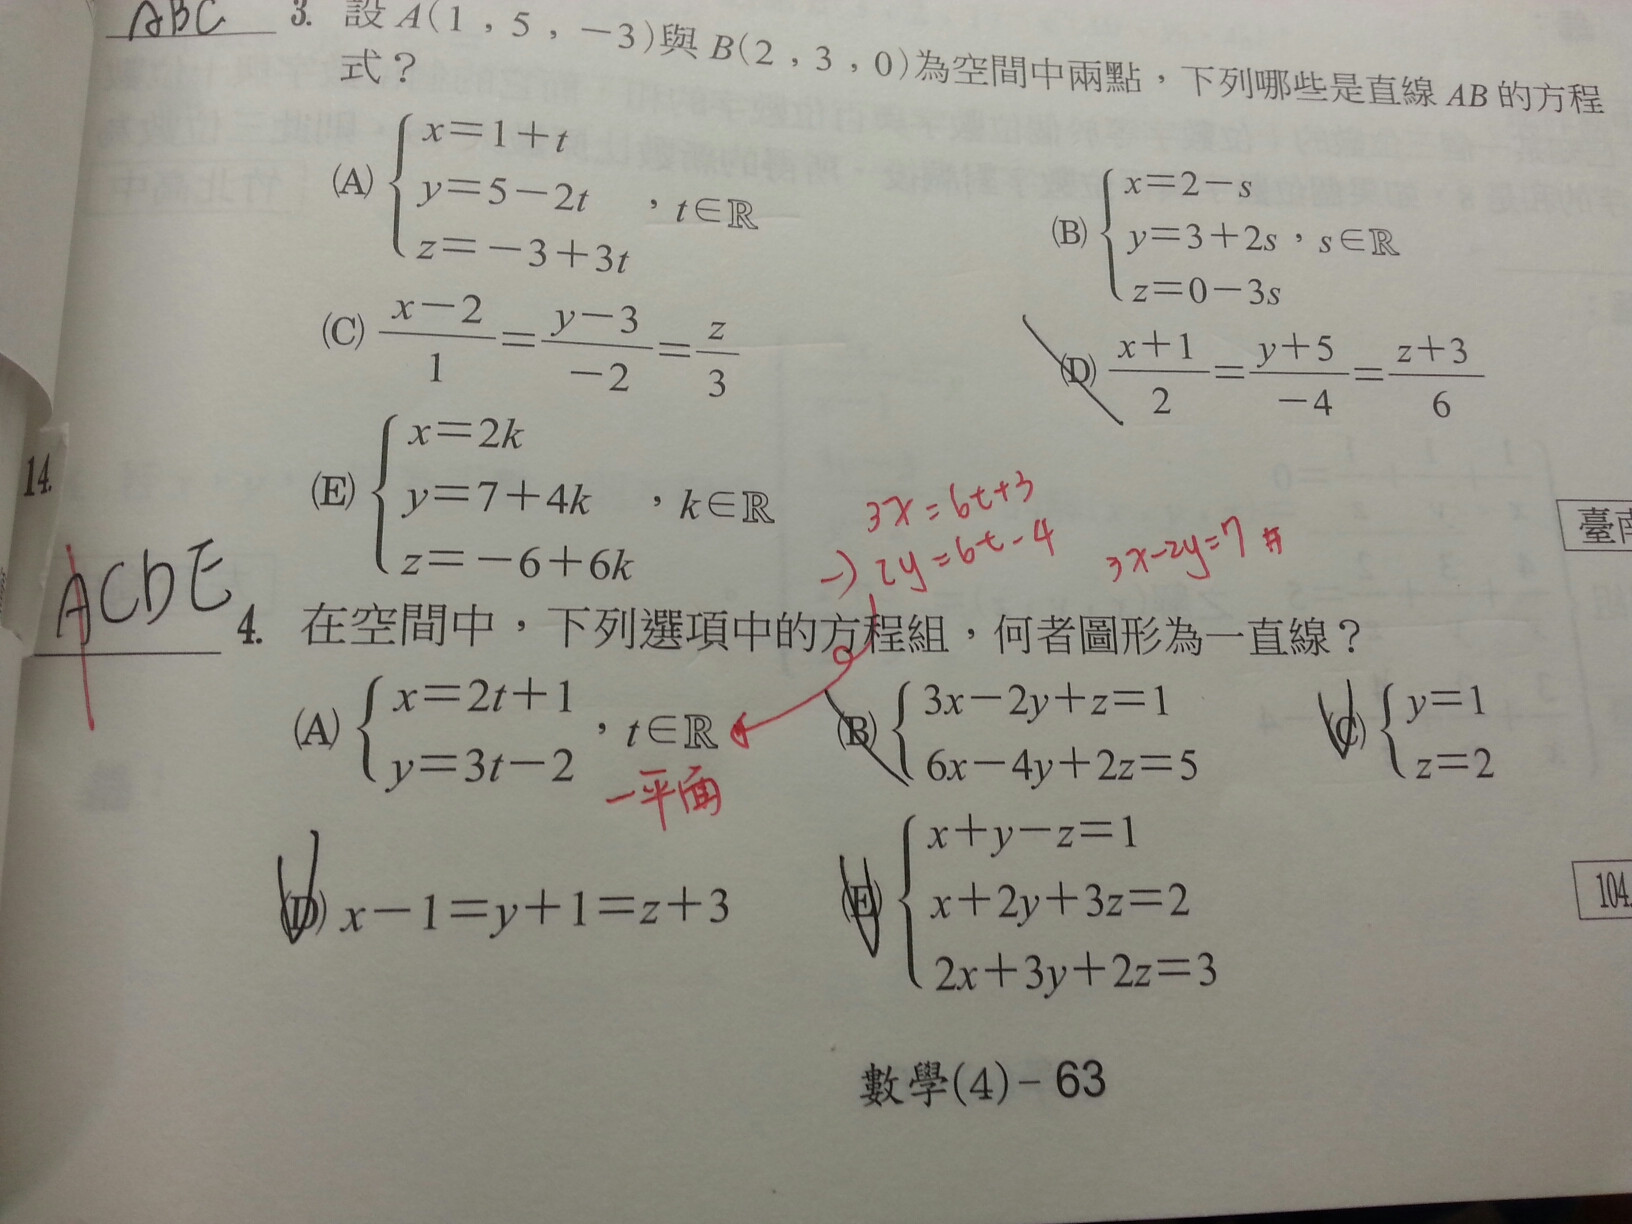 ABC 3. 設 A(1，5，−3)與 B(2，3，0)為空間中兩點，下列哪些是直線 AB 的方程
式？
(A) { x=1+t
y=5−2t ，t∈ℝ
z=−3+3t
(B) { x=2−s
y=3+2s，s∈ℝ
z=0−3s
(C) (x−2)/1=(y−3)/−2=z/3
(D) (x+1)/2=(y+5)/−4=(z+3)/6
(E) { x=2k
y=7+4k ，k∈ℝ
z=−6+6k
14.
3x=6t+3
−) 2y=6t−4
3x−2y=7 #
臺南
ACDE 4. 在空間中，下列選項中的方程組，何者圖形為一直線？
(A) { x=2t+1
y=3t−2 ，t∈ℝ
一平面
(B) { 3x−2y+z=1
6x−4y+2z=5
(C) { y=1
z=2
(D) x−1=y+1=z+3
(E) { x+y−z=1
x+2y+3z=2
2x+3y+2z=3
104.
數學(4)−63